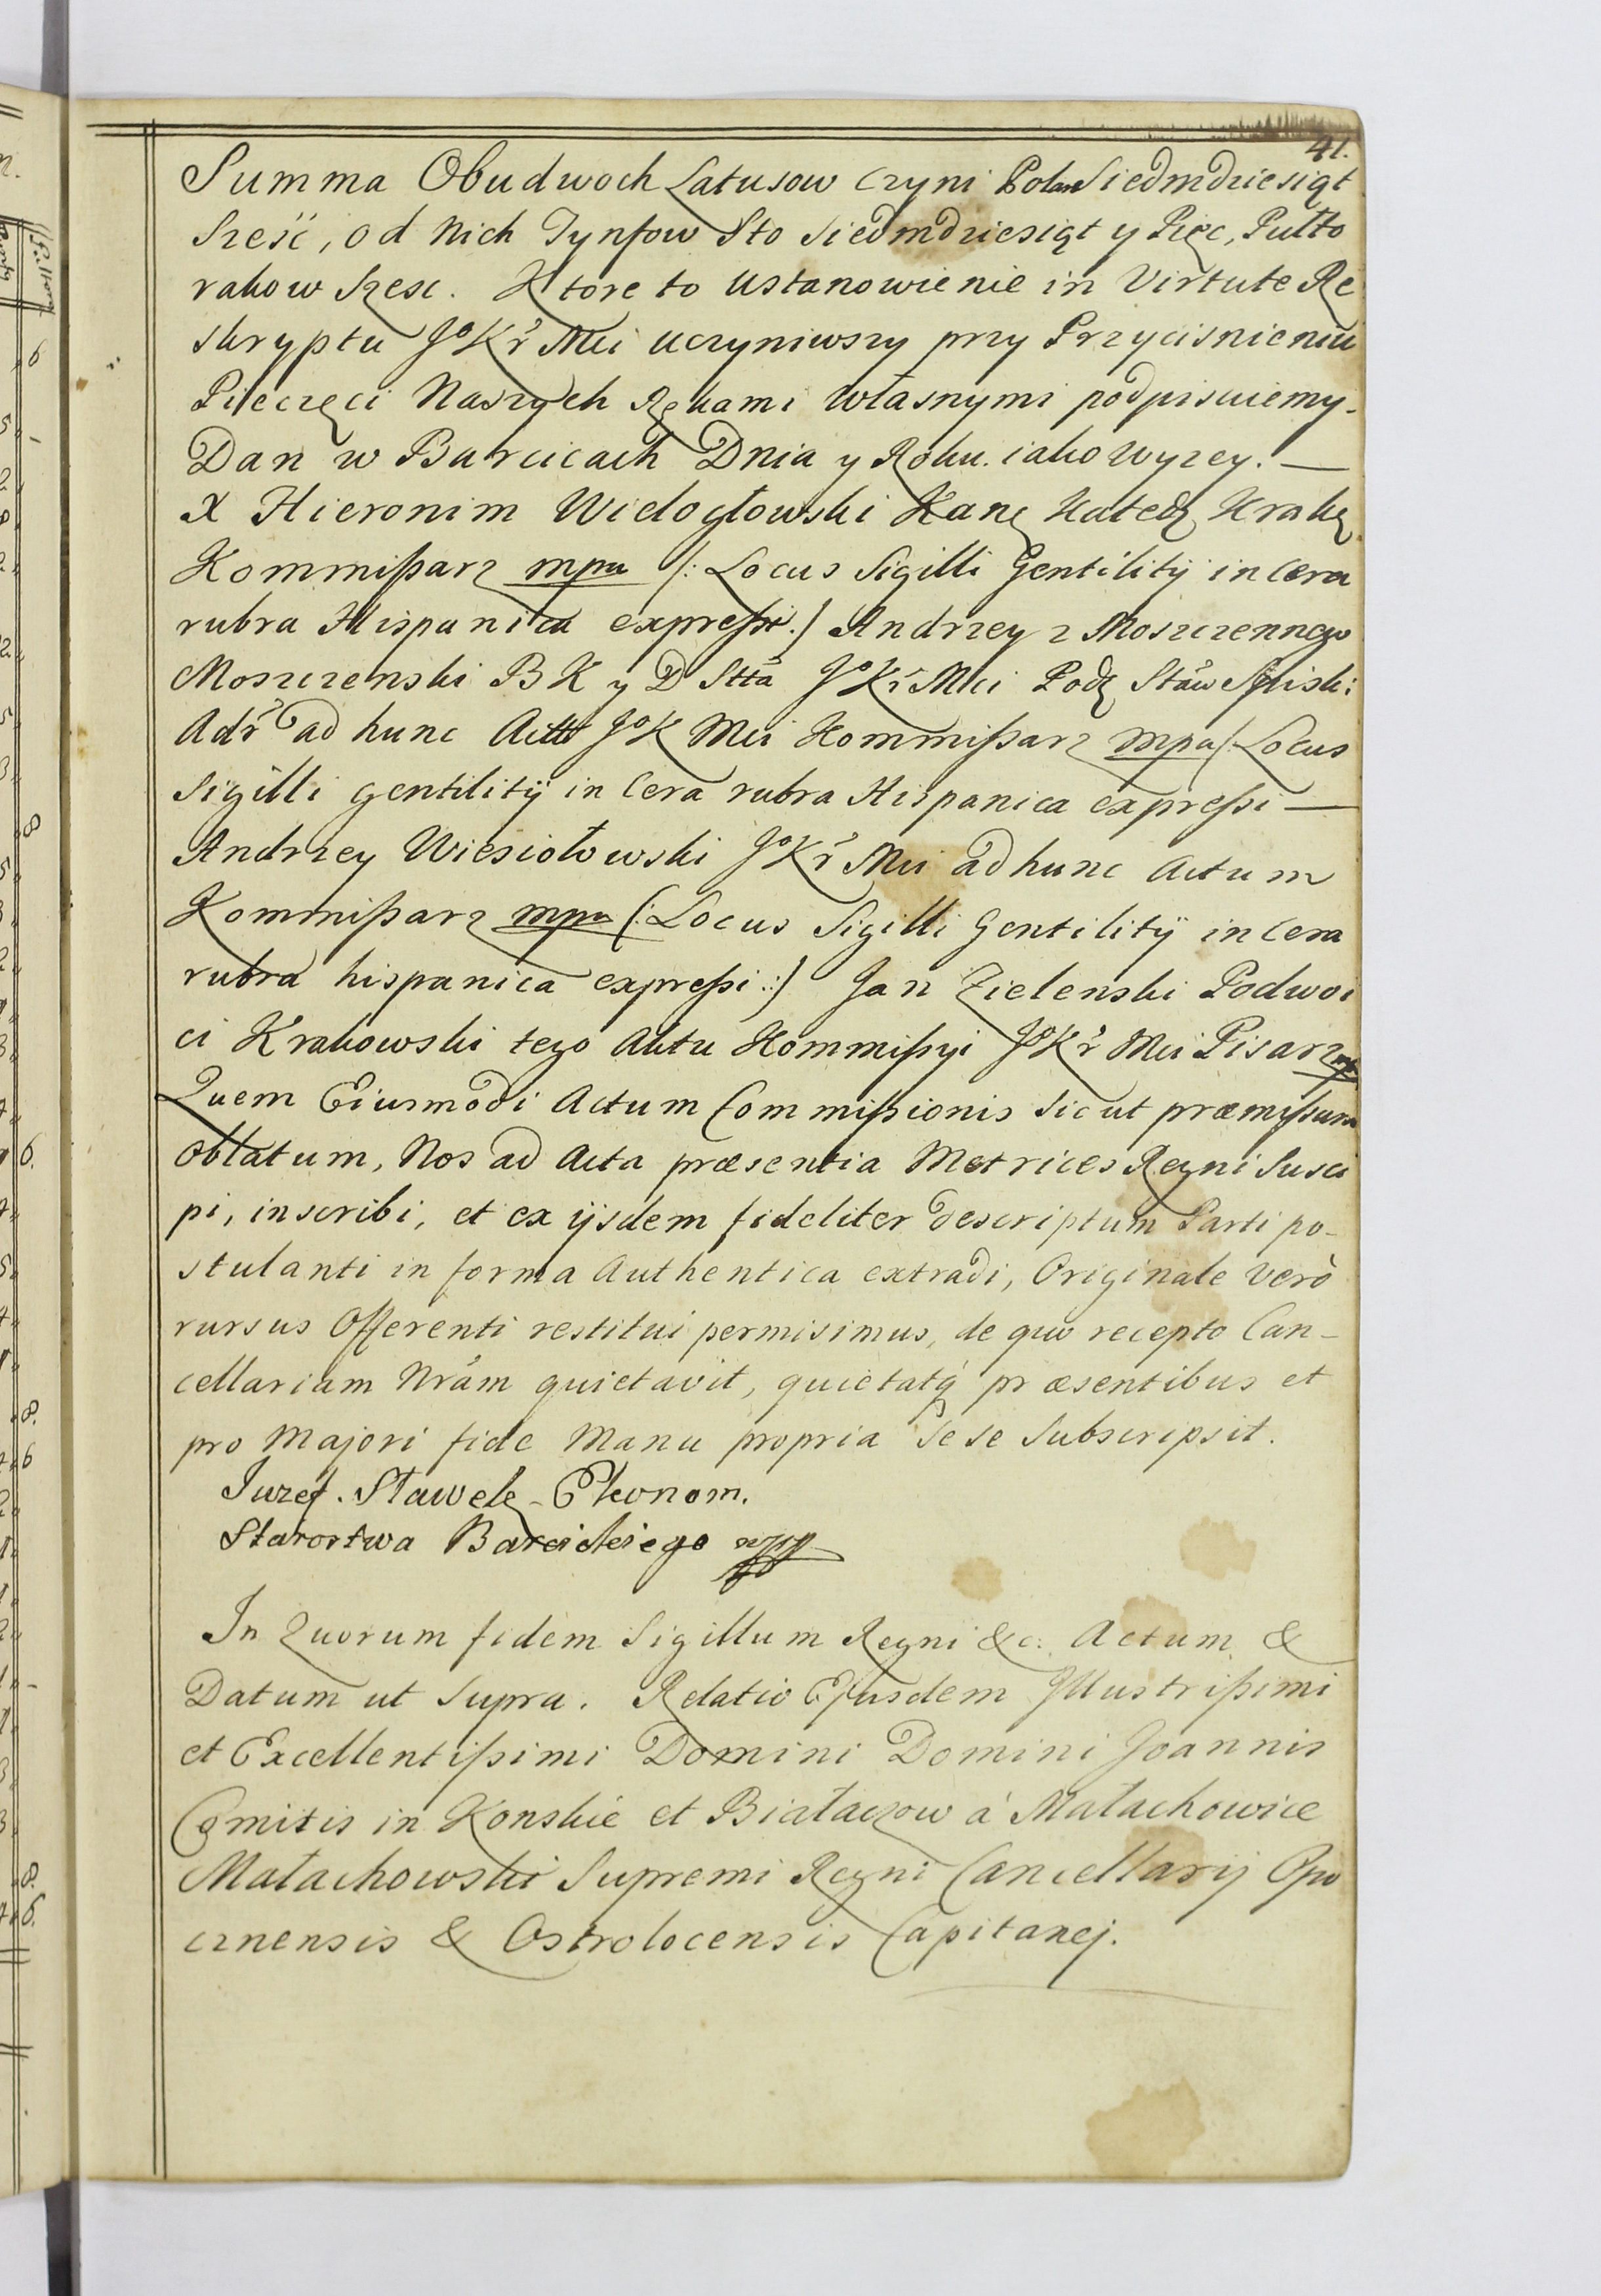 41.
Summa Obudwoch Latusow czyni Polan Siedmdziesiąt
Szesć, od Nich Tynfow Sto Siedmdziesiąt y Pięc, Pułto
rakow Szesc. Ktore to Ustanowienie in Virtute Re
skryptu JoKr Mci uczyniwszy przy Przycisnieniu
Pieczęci Naszych Rękami własnymi podpisuiemy.
Dan w Barcicach Dnia y Roku iako wyzey. —
X Hieronim Wielogłowski Kan Kated Krak
Kommißarz mpa /: Locus Sigilli Gentilitÿ in Cera
rubra Hispanica expreßi :/ Andrzey z Moszczennego
Moszczenski B K y D Stta JoKr Mci Pod Staw Spisk:
Adr ad hunc Actt JoK Mci Kommißarz mpa /: Locus
Sigilli gentilitÿ in Cera rubra Hispanica expreßi —
Andrzey Wiesiołowski JoKr Mci ad hunc Actum
Kommißarz mpa (: Locus Sigilli Gentilitÿ in Cera
rubra hispanica expreßi :/ Jan Zielenski Podwoi
ci Krakowski tego Aktu Kommißyi JoKr Mci Pisarz mp
Quem Eiusmodi Actum Commißionis sicut præmyßum
oblatum, Nos ad Acta præsentia Metrices Regni Susci
pi, inscribi, et ex ijsdem fideliter descriptum Parti po-
stulanti in forma Authentica extradi, Originale verò
rursus Offerenti restitui permisimus, de quo recepto Can-
cellariam Nram quietavit, quietatq præsentibus et
pro Majori fide Manu propria sese Subscripsit.
Juzef. Stawele Ekonom.
Starostwa Barcickiego mpp
In Quorum fidem Sigillum Regni &c: Actum &
Datum ut Supra. Relatio Ejusdem Illustrißimi
et Excellentißimi Domini Domini Joannis
Comitis in Konskie et Białaczow á Małachowice
Małachowski Supremi Regni Cancellarij Opo
cznensis & Ostrolocensis Capitanej.